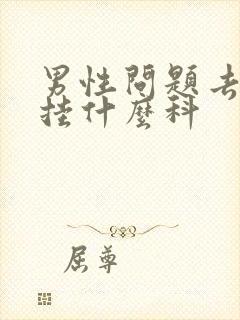 男性問題去
掛什麼科
屈尊